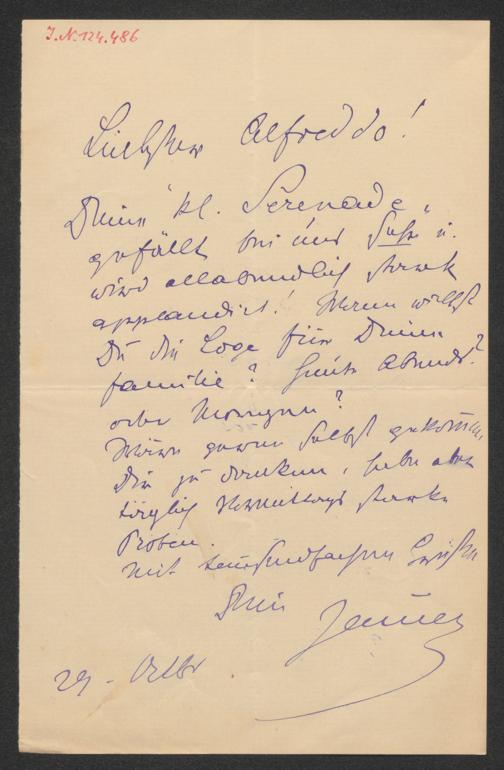 J.N. 124.486
Liebster Alfreddo!
Deine "kl. Serenade"
gefällt bei uns sehr u.
wird allabendlich stark
applaudirt! Wann willst
Du die Loge für Deine
Familie? Heute Abends?
oder Morgen?
Wäre gerne selbst gekommen,
Dir zu danken, habe aber
täglich Vormittags starke
Proben.
Mit tausendfachen Grüßen
Dein
29. Octbr